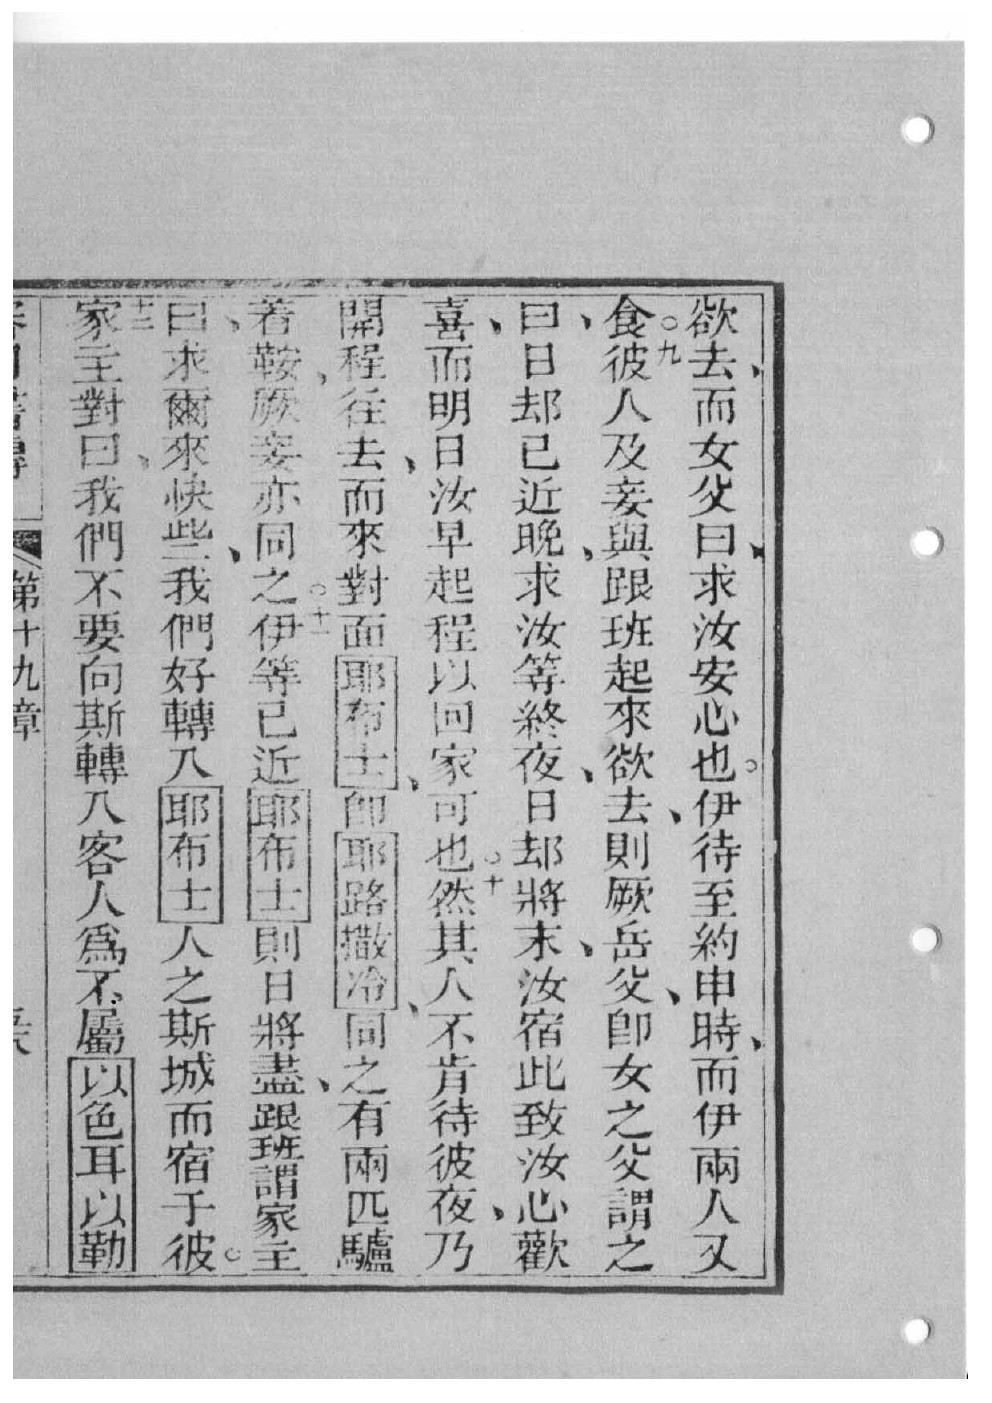 欲去、而女父曰、求汝安心也。伊待至約申時、而伊兩人又
食○九彼人及妾與跟班起來欲去、則厥岳父、即女之父謂之
曰、日却已近晚、求汝等終夜、日却將末、汝宿此致汝心歡
喜、而明日汝早起程以回家可也○十然其人不肯待彼夜、乃
開程往去、而來對面耶布士、即耶路撒冷、同之有兩匹驢
着鞍、厥妾亦同之○十一伊等已近耶布士則日將盡、跟班謂家主
曰、求爾來快些、我們好轉入耶布士人之斯城而宿于彼。
十二家主對曰、我們不要向斯轉入客人爲不屬以色耳以勒
書傳 第十九章